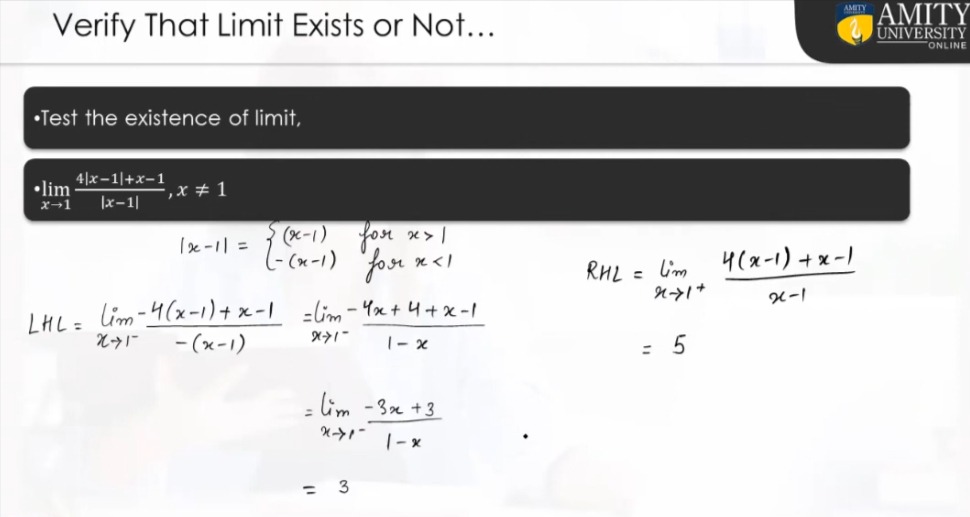 Verify That Limit Exists or Not...
AMITY
AMITY
UNIVERSITY
ONLINE
•Test the existence of limit,
•lim x→1 4|x−1|+x−1 / |x−1| , x ≠ 1
|x-1| = { (x-1) for x > 1
-(x-1) for x < 1
LHL = lim x→1⁻ -4(x-1) + x-1 / -(x-1) = lim x→1⁻ -4x + 4 + x - 1 / 1 - x
= lim x→1⁻ -3x + 3 / 1 - x
= 3
RHL = lim x→1⁺ 4(x-1) + x-1 / x-1
= 5